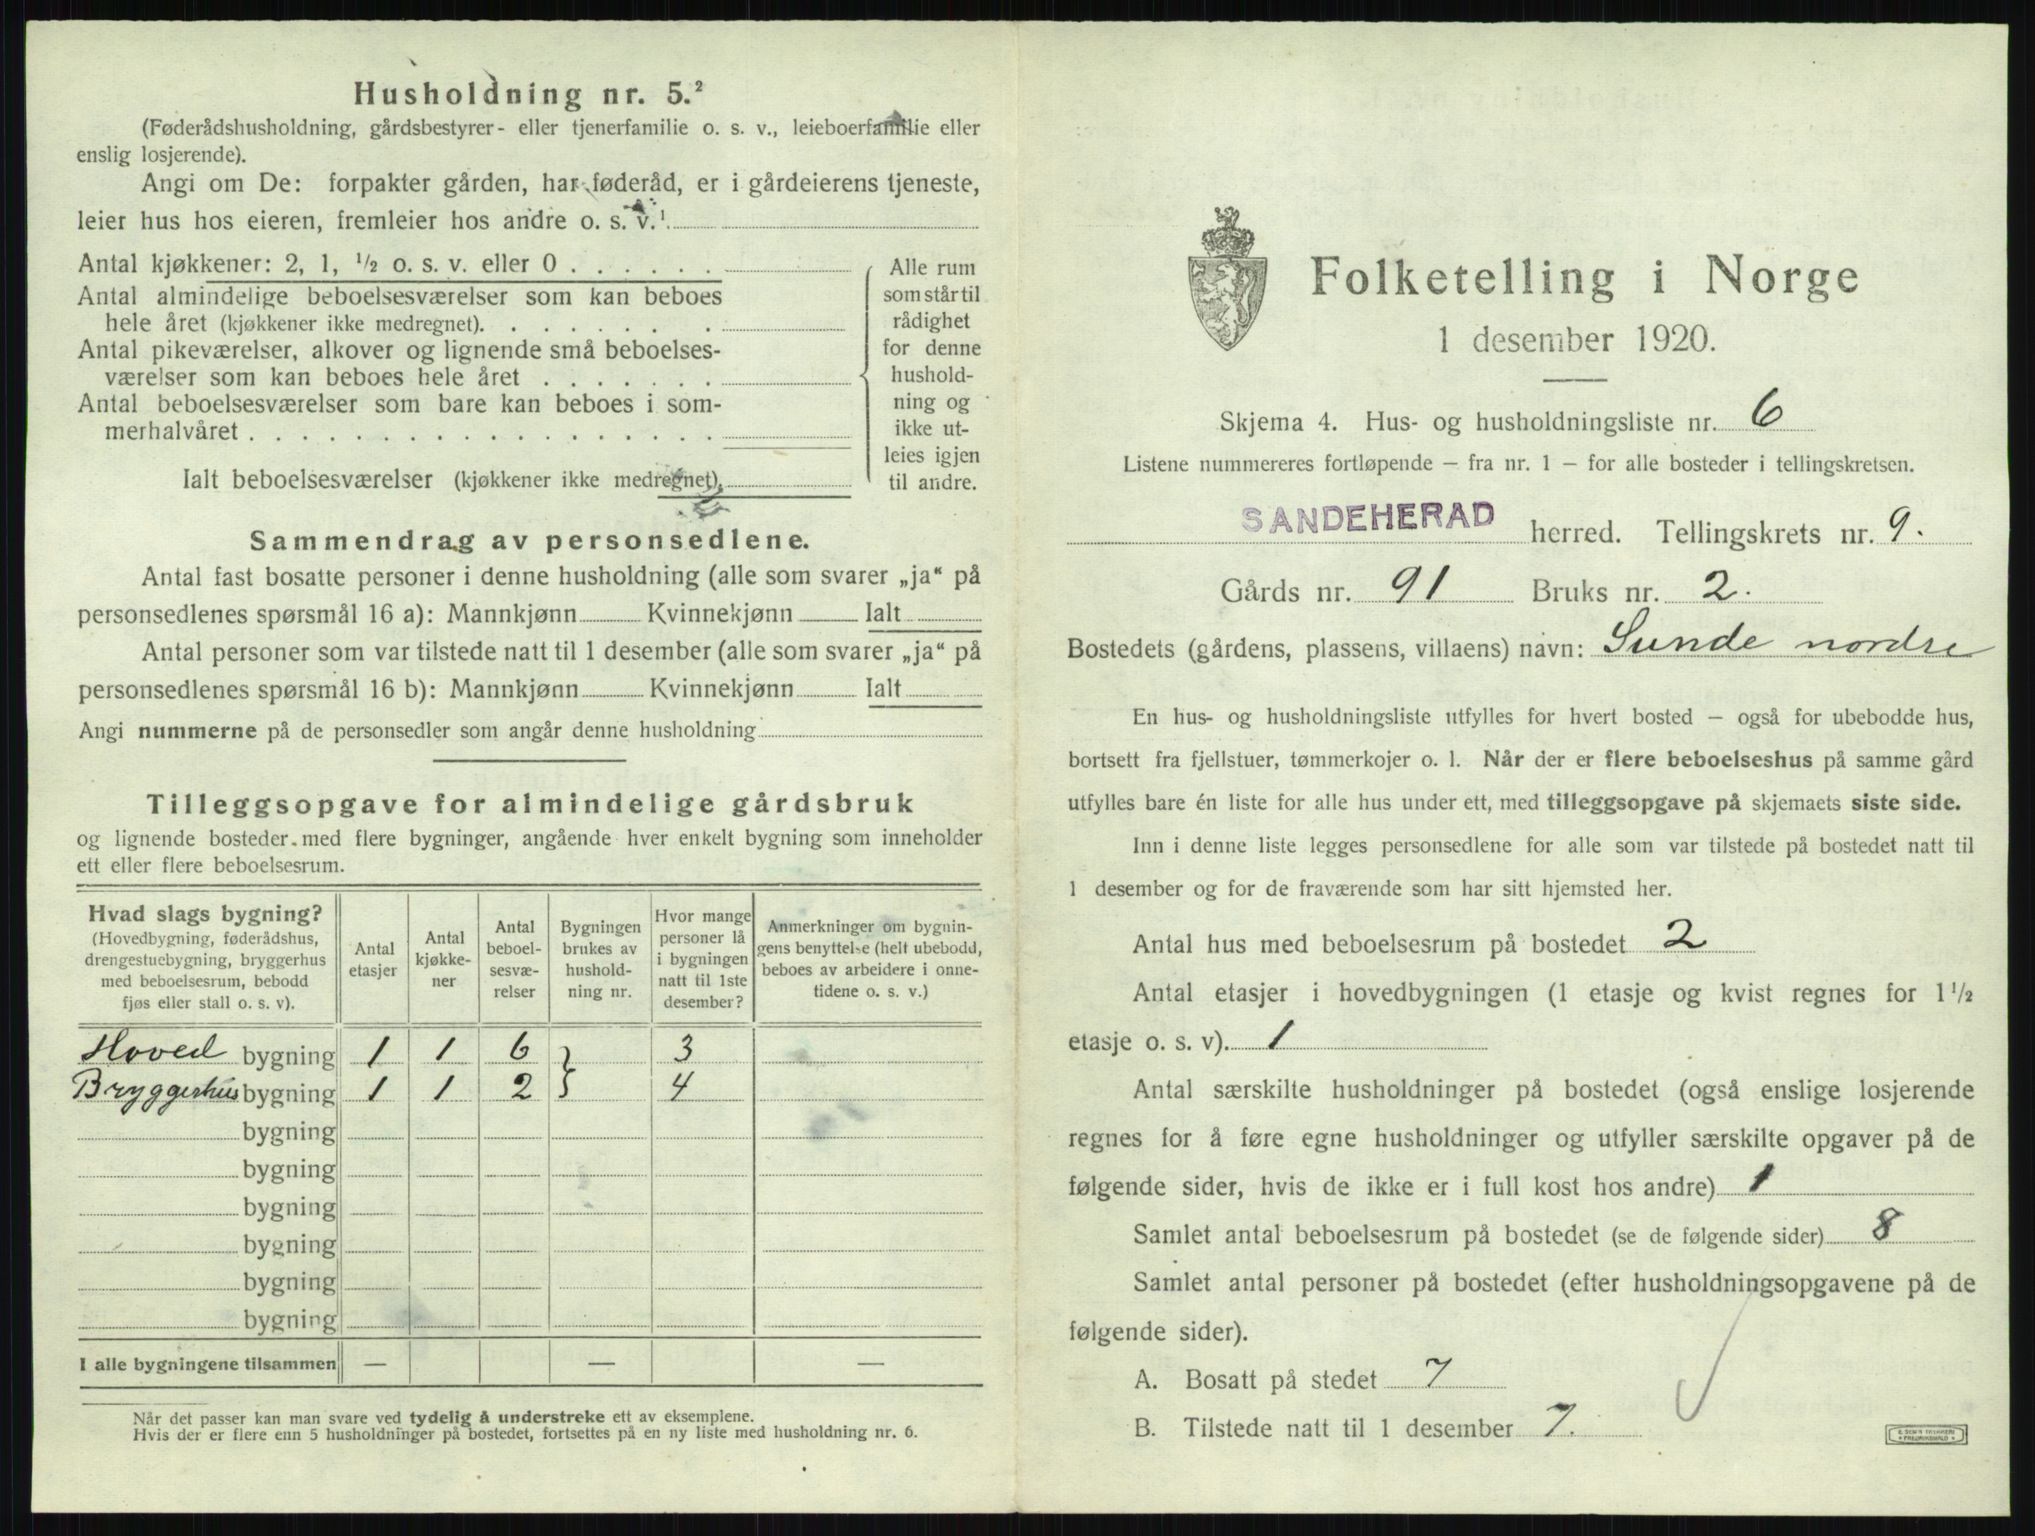 Husholdning nr. 5.²
(Føderådshusholdning, gårdsbestyrer- eller tjenerfamilie o. s. v., leieboerfamilie eller
enslig losjerende).
Angi om De: forpakter gården, har føderåd, er i gårdeierens tjeneste,
leier hus hos eieren, fremleier hos andre o. s. v.¹
Antal kjøkkener: 2, 1, ½ o. s. v. eller 0 . . . . . .
Antal almindelige beboelsesværelser som kan beboes
hele året (kjøkkener ikke medregnet). . . . . . . .
Antal pikeværelser, alkover og lignende små beboelses-
værelser som kan beboes hele året . . . . . . .
Antal beboelsesværelser som bare kan beboes i som-
merhalvåret . . . . . . . . . . . . . . . . . .
Ialt beboelsesværelser (kjøkkener ikke medregnet).
Alle rum
som står til
rådighet
for denne
hushold-
ning og
ikke ut-
leies igjen
til andre.
Sammendrag av personsedlene.
Antal fast bosatte personer i denne husholdning (alle som svarer „ja“ på
personsedlenes spørsmål 16 a): Mannkjønn Kvinnekjønn Ialt
Antal personer som var tilstede natt til 1 desember (alle som svarer „ja“ på
personsedlenes spørsmål 16 b): Mannkjønn Kvinnekjønn Ialt
Angi nummerne på de personsedler som angår denne husholdning
Tilleggsopgave for almindelige gårdsbruk
og lignende bosteder med flere bygninger, angående hver enkelt bygning som inneholder
ett eller flere beboelsesrum.
Hvad slags bygning?
(Hovedbygning, føderådshus,
drengestuebygning, bryggerhus
med beboelsesrum, bebodd
fjøs eller stall o. s. v).
Antal
etasjer
Antal
kjøkke-
ner
Antal
beboel-
sesvæ-
relser
Bygningen
brukes av
hushold-
ning nr.
Hvor mange
personer lå
i bygningen
natt til 1ste
desember?
Anmerkninger om bygnin-
gens benyttelse (helt ubebodd,
beboes av arbeidere i onne-
tidene o. s. v.)
Hoved bygning 1 1 6 } 3
Bryggerhus bygning 1 1 2 } 4
bygning
bygning
bygning
bygning
bygning
bygning
I alle bygningene tilsammen — — —
Når det passer kan man svare ved tydelig å understreke ett av eksemplene.
Hvis der er flere enn 5 husholdninger på bostedet, fortsettes på en ny liste med husholdning nr. 6.
Folketelling i Norge
1 desember 1920.
Skjema 4. Hus- og husholdningsliste nr. 6
Listene nummereres fortløpende – fra nr. 1 – for alle bosteder i tellingskretsen.
SANDEHERAD herred. Tellingskrets nr. 9.
Gårds nr. 91 Bruks nr. 2.
Bostedets (gårdens, plassens, villaens) navn: Sunde nordre
En hus- og husholdningsliste utfylles for hvert bosted – også for ubebodde hus,
bortsett fra fjellstuer, tømmerkojer o. l. Når der er flere beboelseshus på samme gård
utfylles bare én liste for alle hus under ett, med tilleggsopgave på skjemaets siste side.
Inn i denne liste legges personsedlene for alle som var tilstede på bostedet natt til
1 desember og for de fraværende som har sitt hjemsted her.
Antal hus med beboelsesrum på bostedet 2
Antal etasjer i hovedbygningen (1 etasje og kvist regnes for 1½
etasje o. s. v). 1
Antal særskilte husholdninger på bostedet (også enslige losjerende
regnes for å føre egne husholdninger og utfyller særskilte opgaver på de
følgende sider, hvis de ikke er i full kost hos andre) 1
Samlet antal beboelsesrum på bostedet (se de følgende sider) 8
Samlet antal personer på bostedet (efter husholdningsopgavene på de
følgende sider).
A. Bosatt på stedet 7
B. Tilstede natt til 1 desember 7.